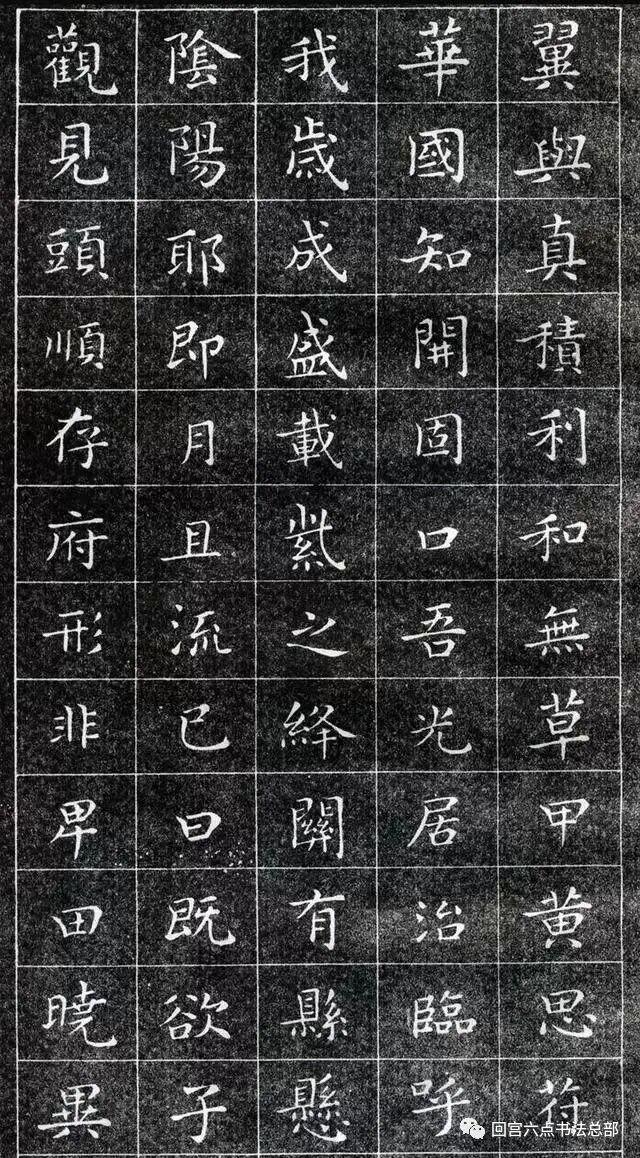 翼與真積利和無草甲黄思苻
華國知開固口吾光居治臨呼
我歳成盛載紫之絳關有縣懸
陰陽耶即月且流已曰既欲子
觀見頭順存府形非卑田曉異
回宫六点书法总部